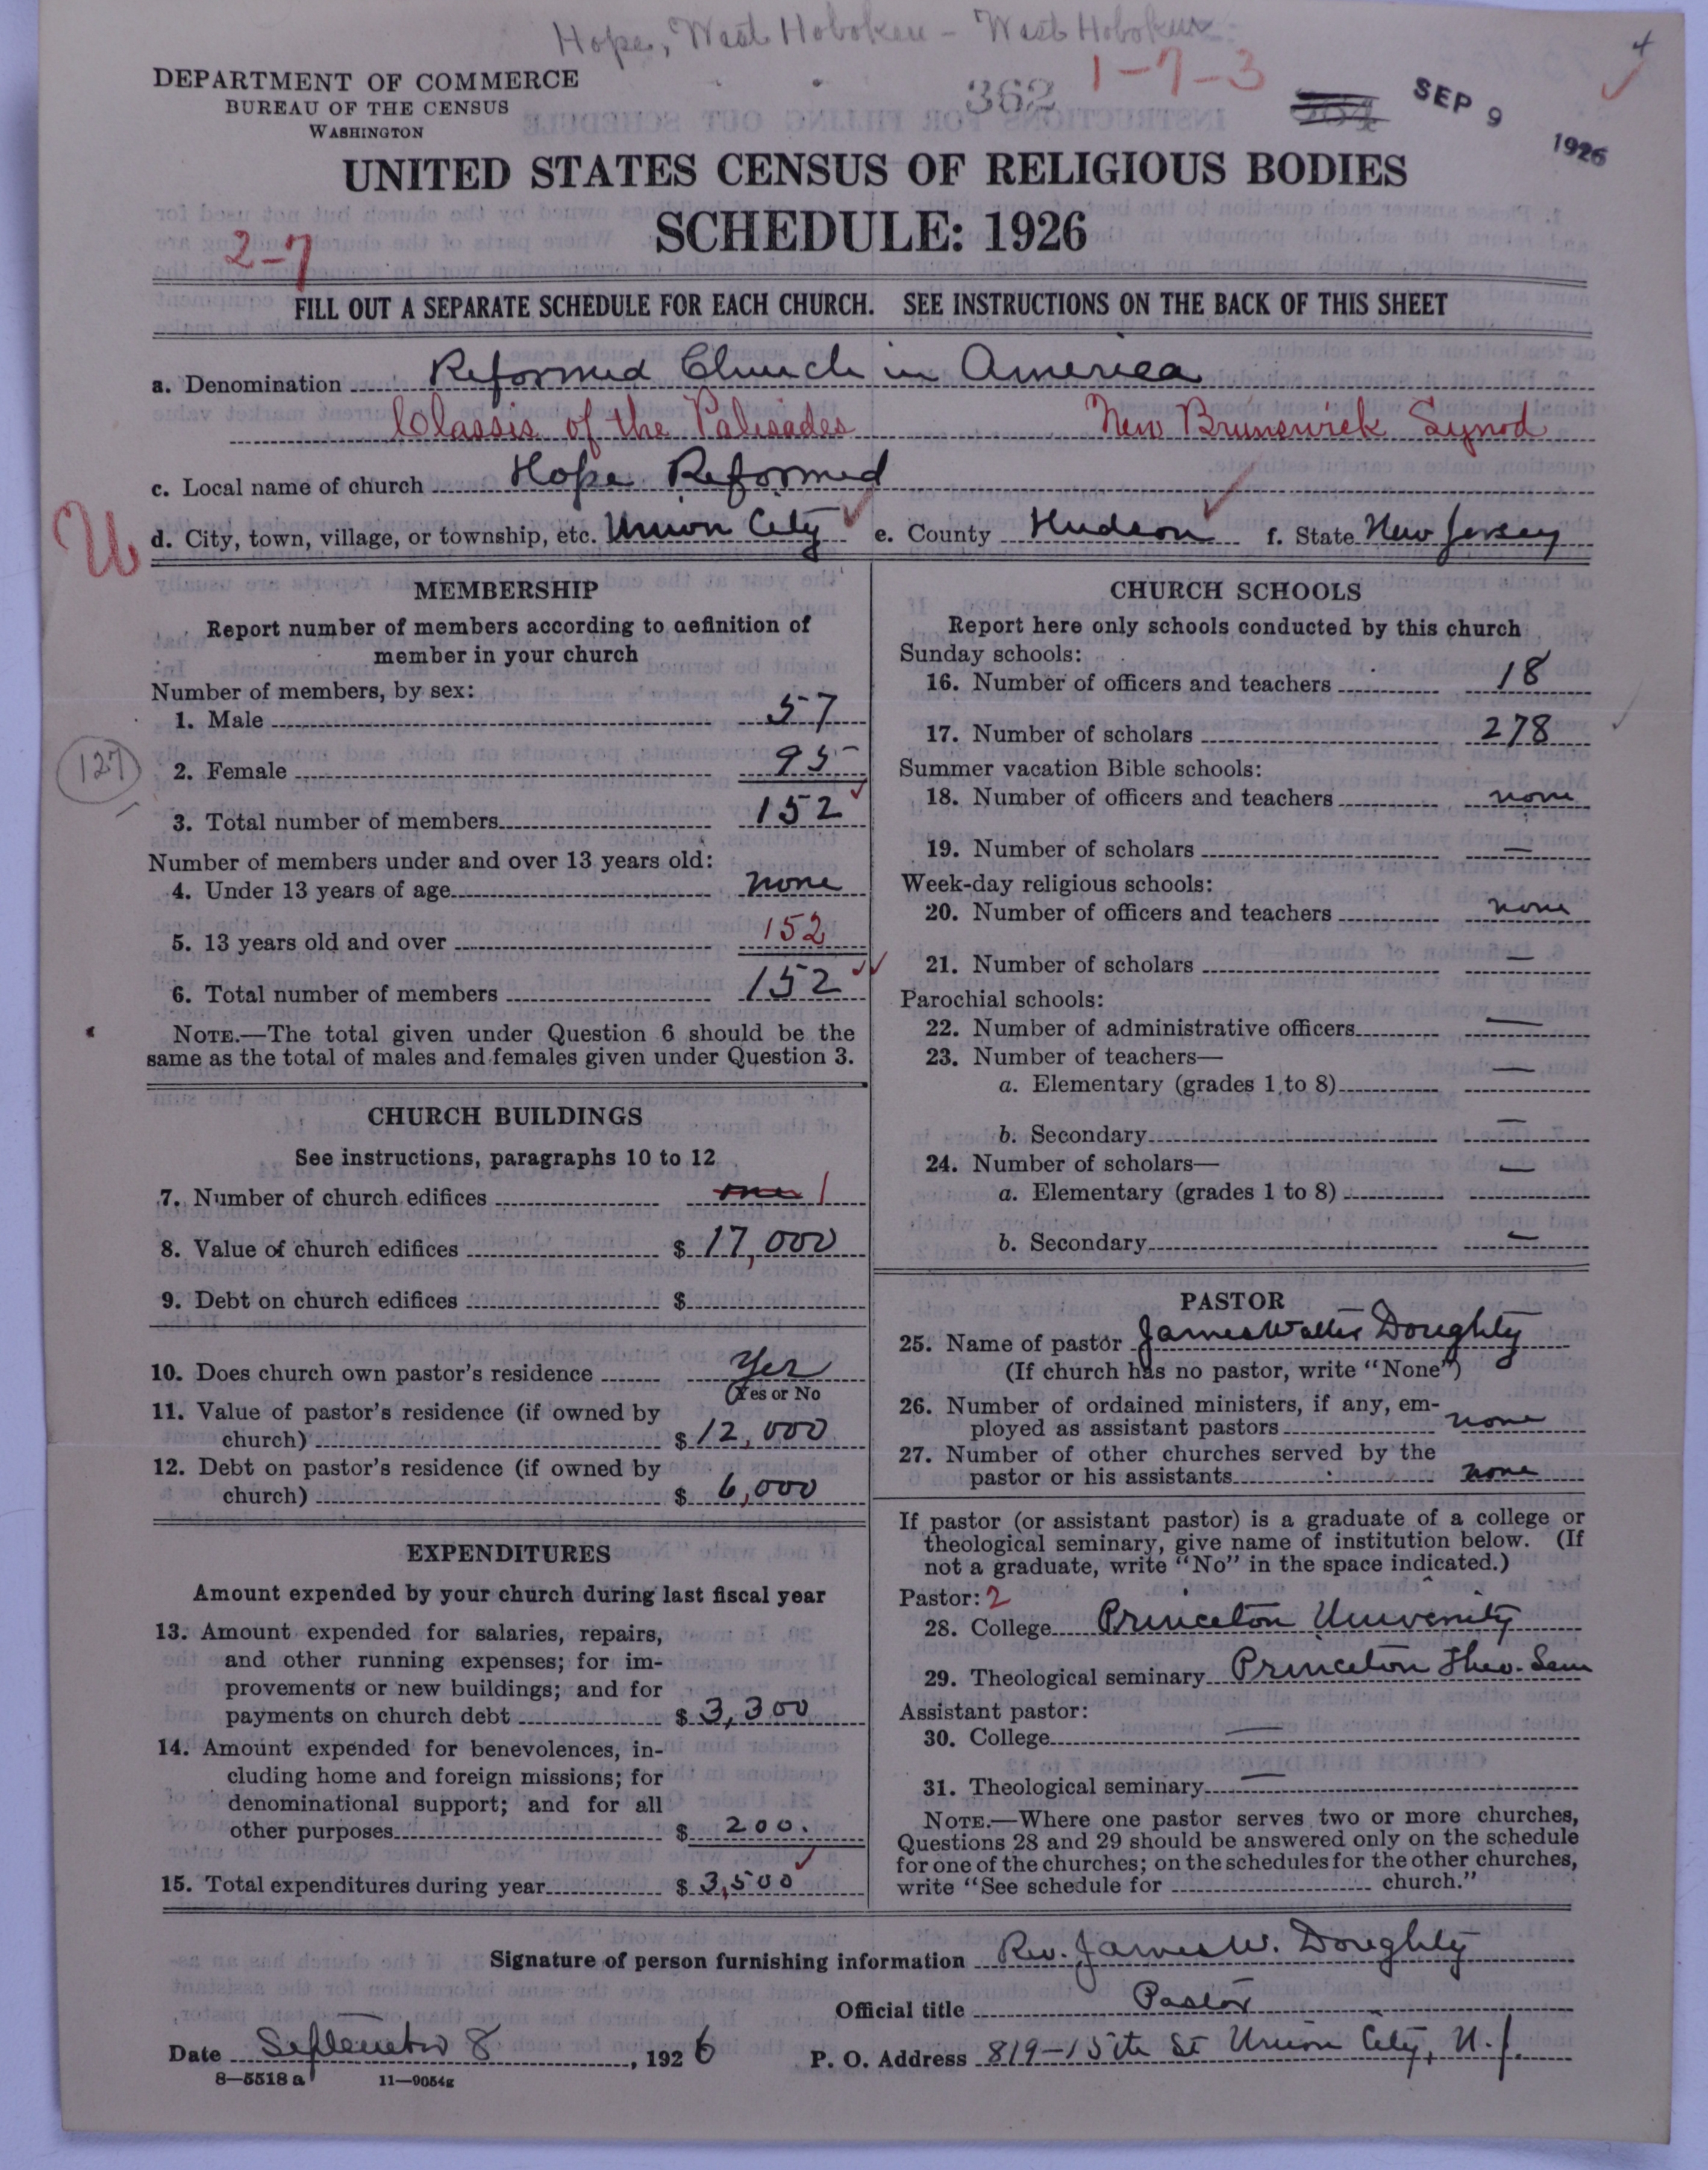 Hope, West Hoboken - West Hoboken
DEPARTMENT OF COMMERCE
BUREAU OF THE CENSUS
WASHINGTON
362
1-7-3
SEP 9 1926
UNITED STATES CENSUS OF RELIGIOUS BODIES
SCHEDULE: 1926
2-7
FILL OUT A SEPARATE SCHEDULE FOR EACH CHURCH. SEE INSTRUCTIONS ON THE BACK OF THIS SHEET
a. Denomination Reformed Church in America
Classis of the Palisades New Brunswick Synod
c. Local name of church Hope Reformed
U
d. City, town, village, or township, etc. Union City e. County Hudson f. State New Jersey
MEMBERSHIP
Report number of members according to definition of
member in your church
Number of members, by sex:
1. Male 57
127
2. Female 95
3. Total number of members 152
Number of members under and over 13 years old:
4. Under 13 years of age none
5. 13 years old and over 152
6. Total number of members 152
NOTE.—The total given under Question 6 should be the
same as the total of males and females given under Question 3.
CHURCH BUILDINGS
See instructions, paragraphs 10 to 12
7. Number of church edifices one 1
8. Value of church edifices $ 17,000
9. Debt on church edifices $
10. Does church own pastor's residence Yes
(Yes or No
11. Value of pastor's residence (if owned by
church) $ 12,000
12. Debt on pastor's residence (if owned by
church) $ 6,000
EXPENDITURES
Amount expended by your church during last fiscal year
13. Amount expended for salaries, repairs,
and other running expenses; for im-
provements or new buildings; and for
payments on church debt $ 3,300
14. Amount expended for benevolences, in-
cluding home and foreign missions; for
denominational support; and for all
other purposes $ 200.
15. Total expenditures during year $ 3,500
CHURCH SCHOOLS
Report here only schools conducted by this church
Sunday schools:
16. Number of officers and teachers 18
17. Number of scholars 278
Summer vacation Bible schools:
18. Number of officers and teachers none
19. Number of scholars —
Week-day religious schools:
20. Number of officers and teachers none
21. Number of scholars —
Parochial schools:
22. Number of administrative officers —
23. Number of teachers—
a. Elementary (grades 1 to 8) —
b. Secondary —
24. Number of scholars—
a. Elementary (grades 1 to 8) —
b. Secondary —
PASTOR
25. Name of pastor James Walter Doughty
(If church has no pastor, write "None")
26. Number of ordained ministers, if any, em-
ployed as assistant pastors none
27. Number of other churches served by the
pastor or his assistants none
If pastor (or assistant pastor) is a graduate of a college or
theological seminary, give name of institution below. (If
not a graduate, write "No" in the space indicated.)
Pastor: 2
28. College Princeton University
29. Theological seminary Princeton Theo. Sem
Assistant pastor:
30. College —
31. Theological seminary —
NOTE.—Where one pastor serves two or more churches,
Questions 28 and 29 should be answered only on the schedule
for one of the churches; on the schedules for the other churches,
write "See schedule for church."
Signature of person furnishing information Rev. James W. Doughty
Official title Pastor
Date September 8, 1926 P. O. Address 819-15th St Union City, N.J.
8—5518 a 11—9054g